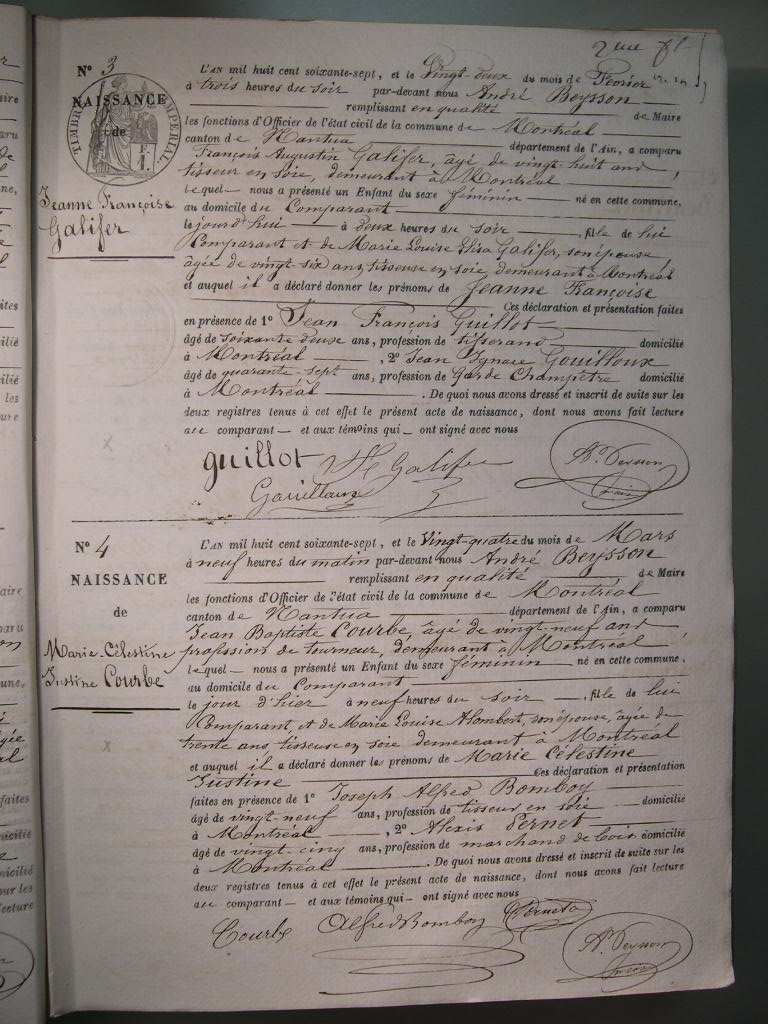 2me f
N° 3
NAISSANCE
de
TIMBRE IMPÉRIAL
Jeanne Françoise
Galifer
L'AN mil huit cent soixante-sept, et le Vingt-deux du mois de Février
à trois heures du soir par-devant nous André Beysson
remplissant en qualité de Maire
les fonctions d'Officier de l'état civil de la commune de Montréal
canton de Nantua département de l'Ain, a comparu
François Augustin Galifer, âgé de vingt huit ans,
tisseur en soie, demeurant à Montréal
lequel nous a présenté un Enfant du sexe féminin né en cette commune,
au domicile du Comparant
le jour d'hui à deux heures du soir, fille de lui
Comparant et de Marie Louise Eliza Galifer, son épouse,
âgée de vingt-six ans, tisseuse en soie, demeurant à Montréal
et auquel il a déclaré donner les prénoms de Jeanne Françoise
Ces déclaration et présentation faites
en présence de 1° Jean François Guillot
âgé de soixante deux ans, profession de tisserand domicilié
à Montréal, 2° Jean Ignace Gouilloux
âgé de quarante-sept ans, profession de Garde Champêtre domicilié
à Montréal. De quoi nous avons dressé et inscrit de suite sur les
deux registres tenus à cet effet le présent acte de naissance, dont nous avons fait lecture
au comparant et aux témoins qui ont signé avec nous
guillot Galifer
Gouilloux
N° 4
NAISSANCE
de
Marie-Célestine
Justine Courbe
L'AN mil huit cent soixante-sept, et le Vingt-quatre du mois de Mars
à neuf heures du matin par-devant nous André Beysson
remplissant en qualité de Maire
les fonctions d'Officier de l'état civil de la commune de Montréal
canton de Nantua département de l'Ain, a comparu
Jean Baptiste Courbe, âgé de vingt-neuf ans
profession de tourneur, demeurant à Montréal
lequel nous a présenté un Enfant du sexe féminin né en cette commune,
au domicile du Comparant
le jour d'hier à neuf heures du soir, fille de lui
Comparant, et de Marie Louise Alombert, son épouse, âgée de
trente ans, tisseuse en soie demeurant à Montréal
et auquel il a déclaré donner les prénoms de Marie Célestine
Justine Ces déclaration et présentation
faites en présence de 1° Joseph Alfred Bomboy
âgé de vingt-neuf ans, profession de tisseur en soie domicilié
à Montréal, 2° Alexis Pernet
âgé de vingt-cinq ans, profession de marchand de bois domicilié
à Montréal. De quoi nous avons dressé et inscrit de suite sur les
deux registres tenus à cet effet le présent acte de naissance, dont nous avons fait lecture
au comparant et aux témoins qui ont signé avec nous
Courbe Alfred Bomboy